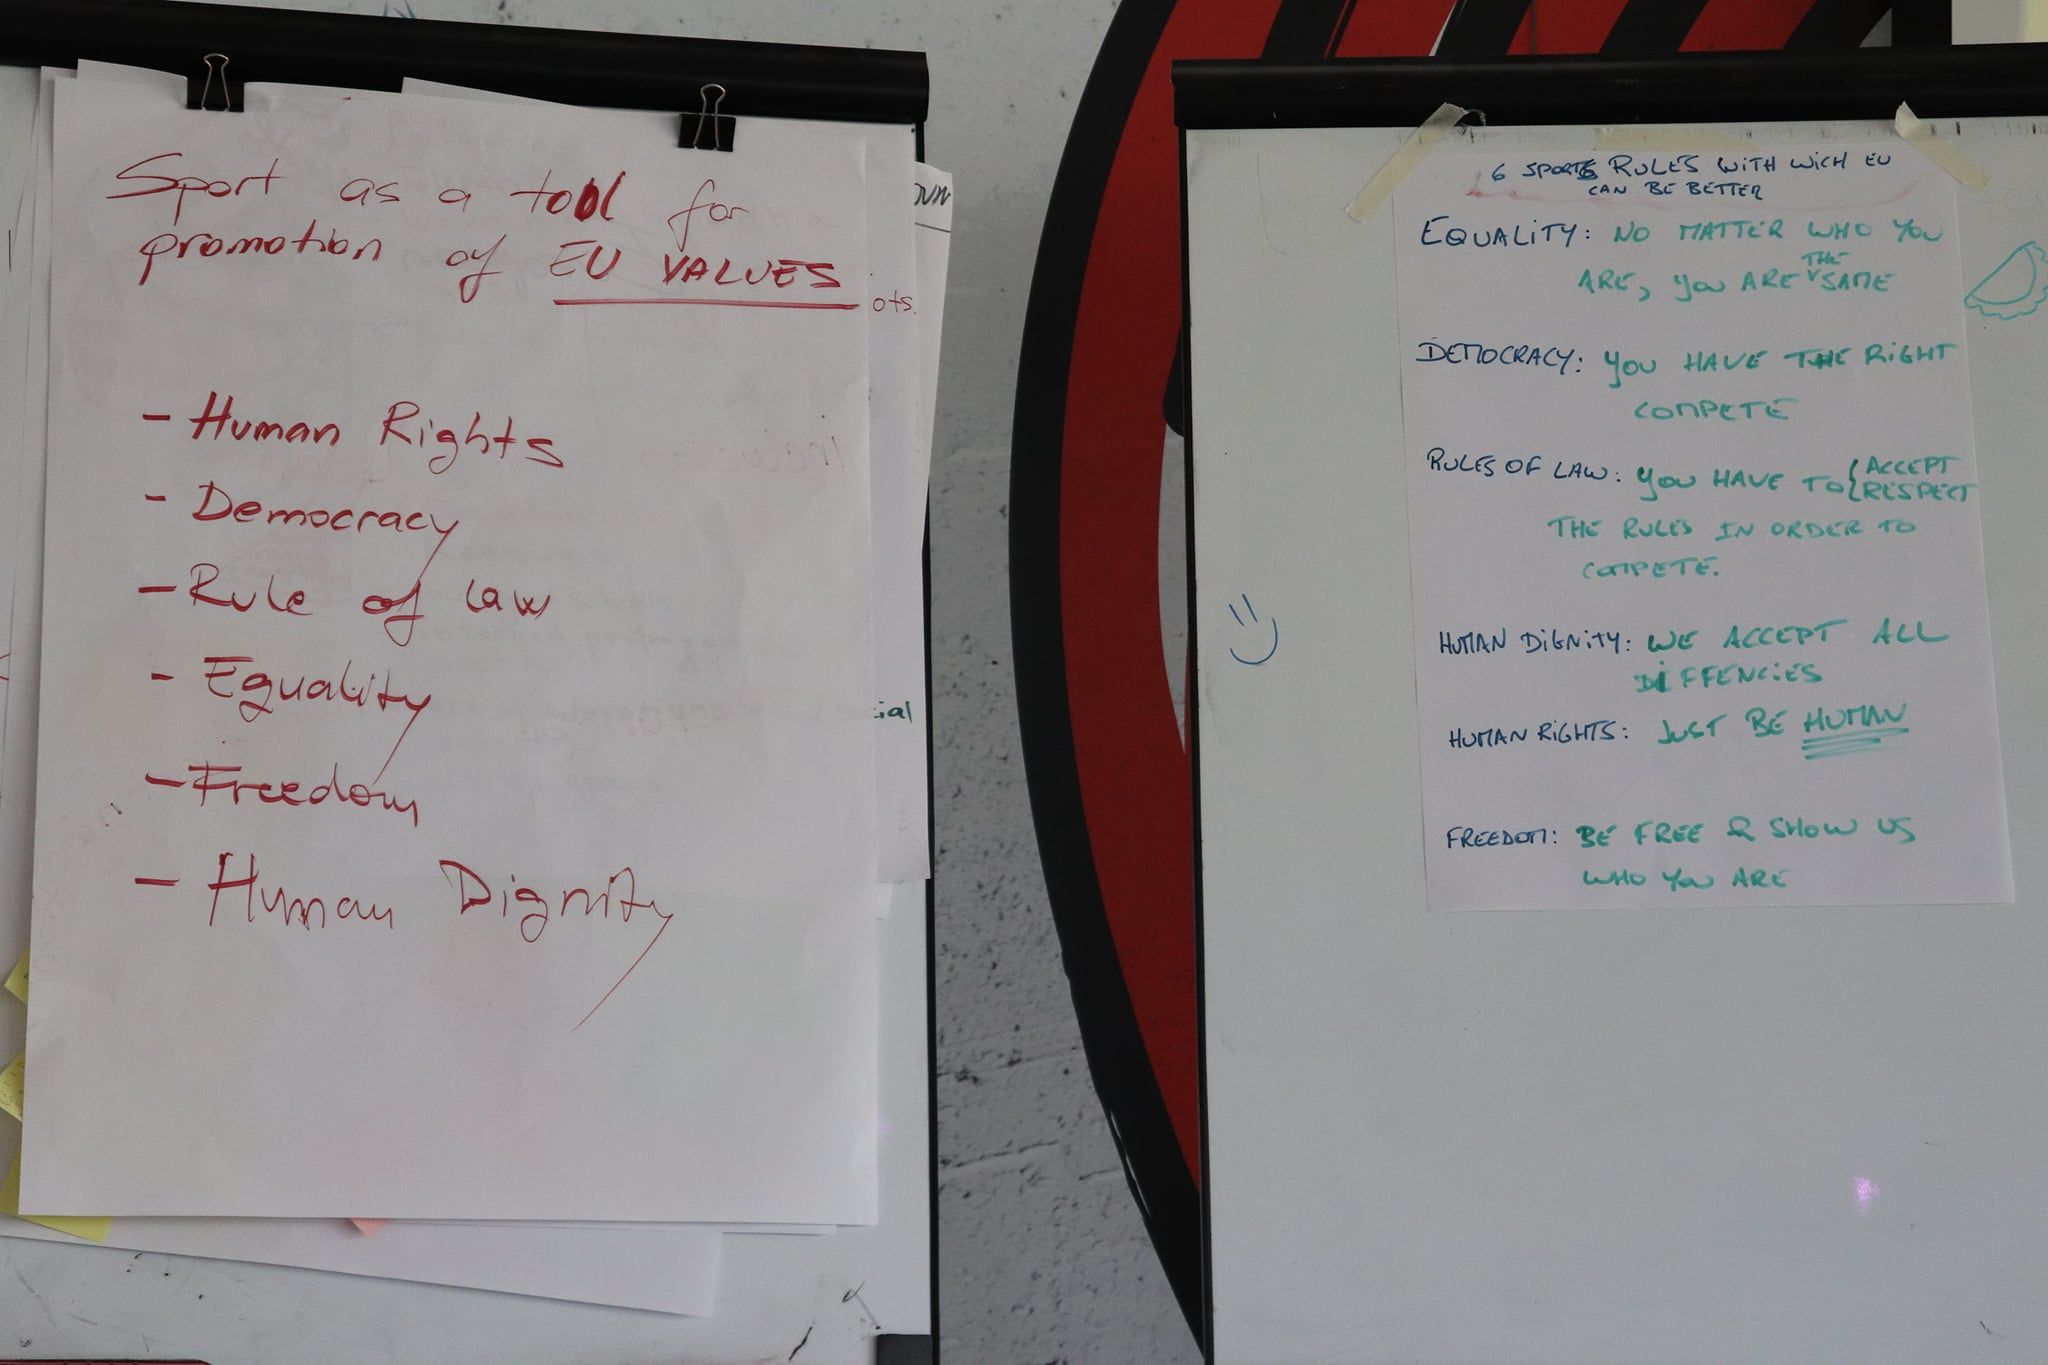 Sport as a tool for
promotion of EU VALUES
- Human Rights
- Democracy
- Rule of law
- Equality
- Freedom
- Human Dignity
ots.
ial
6 SPORTS RULES WITH WICH EU
CAN BE BETTER
EQUALITY: NO MATTER WHO YOU
ARE, YOU ARE THE SAME
DEMOCRACY: YOU HAVE THE RIGHT
COMPETE
RULES OF LAW: YOU HAVE TO { ACCEPT
RESPECT
THE RULES IN ORDER TO
COMPETE.
HUMAN DIGNITY: WE ACCEPT ALL
DIFFENCIES
HUMAN RIGHTS: JUST BE HUMAN
FREEDOM: BE FREE & SHOW US
WHO YOU ARE